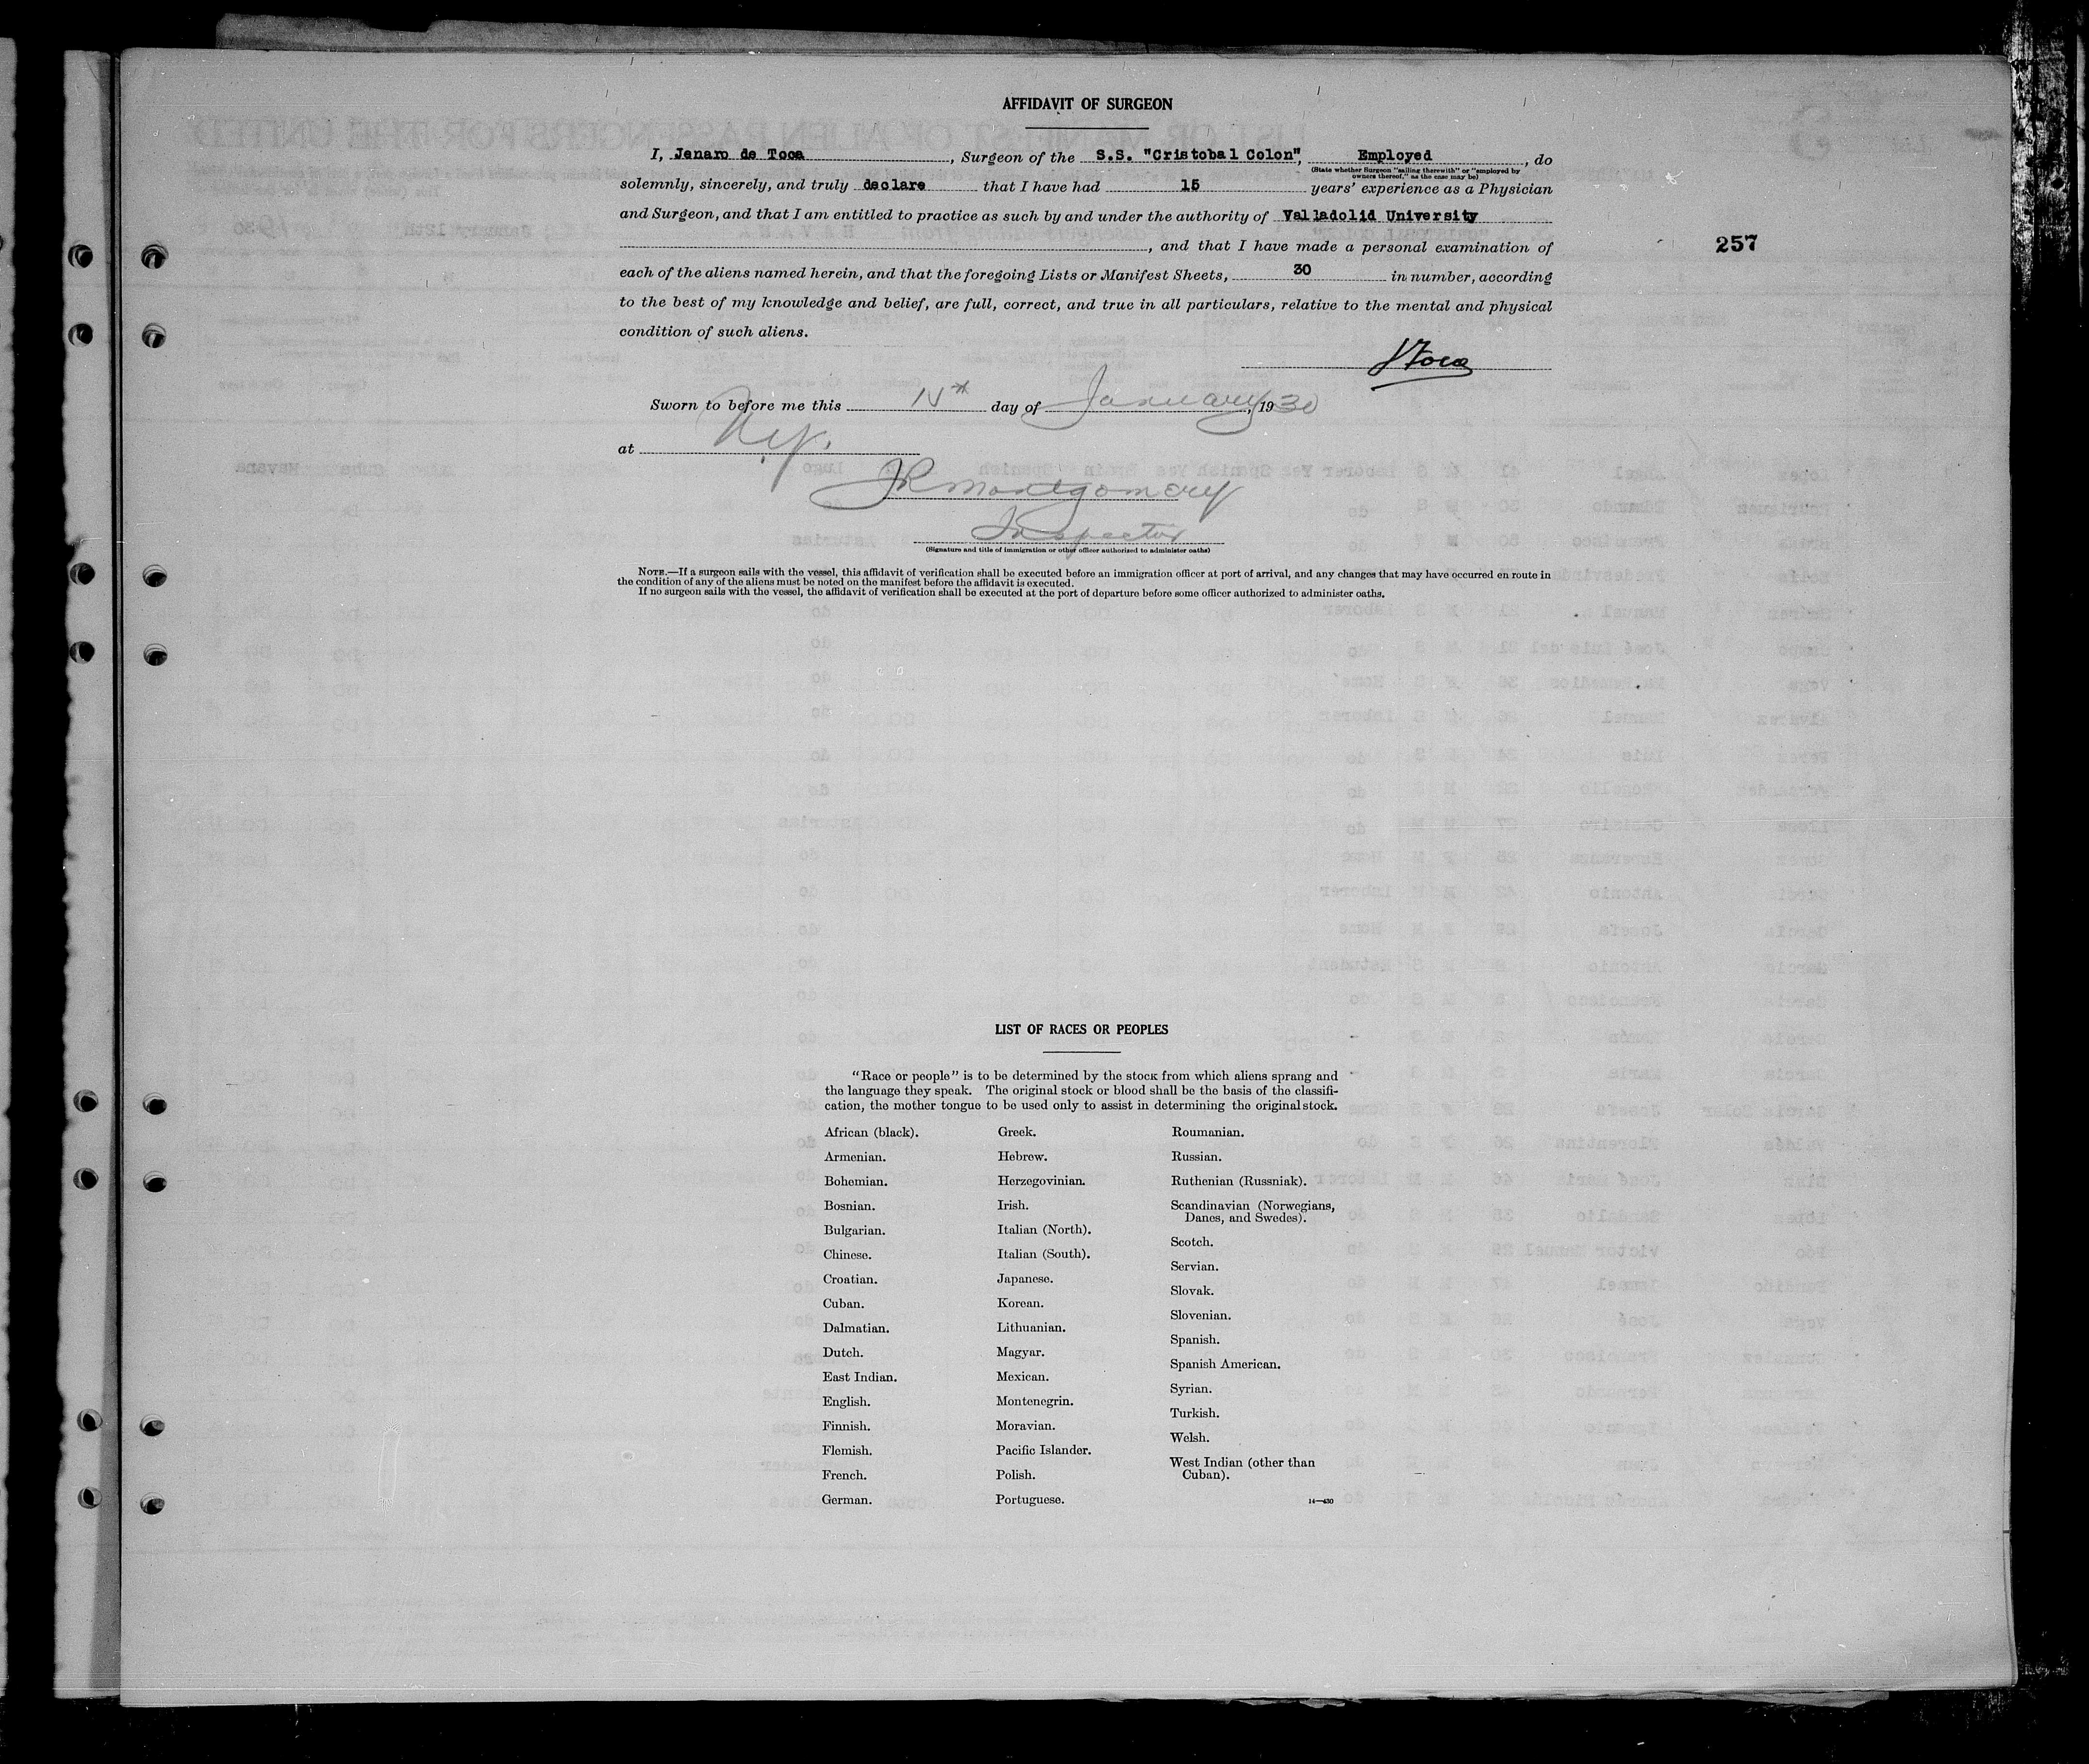 AFFIDAVIT OF SURGEON
I, Jenaro de Toca, Surgeon of the S.S. "Cristobal Colon", Employed, do
(State whether Surgeon "sailing therewith" or "employed by
owners thereof," as the case may be)
solemnly, sincerely, and truly declare that I have had 15 years' experience as a Physician
and Surgeon, and that I am entitled to practice as such by and under the authority of Valladolid University
, and that I have made a personal examination of
257
each of the aliens named herein, and that the foregoing Lists or Manifest Sheets, 30 in number, according
to the best of my knowledge and belief, are full, correct, and true in all particulars, relative to the mental and physical
condition of such aliens.
JToca
Sworn to before me this 15th day of January, 1930
at N.Y.
JR Montgomery
Inspector
(Signature and title of immigration or other officer authorized to administer oaths)
NOTE.—If a surgeon sails with the vessel, this affidavit of verification shall be executed before an immigration officer at port of arrival, and any changes that may have occurred en route in
the condition of any of the aliens must be noted on the manifest before the affidavit is executed.
If no surgeon sails with the vessel, the affidavit of verification shall be executed at the port of departure before some officer authorized to administer oaths.
LIST OF RACES OR PEOPLES
"Race or people" is to be determined by the stock from which aliens sprang and
the language they speak. The original stock or blood shall be the basis of the classifi-
cation, the mother tongue to be used only to assist in determining the original stock.
African (black).
Armenian.
Bohemian.
Bosnian.
Bulgarian.
Chinese.
Croatian.
Cuban.
Dalmatian.
Dutch.
East Indian.
English.
Finnish.
Flemish.
French.
German.
Greek.
Hebrew.
Herzegovinian.
Irish.
Italian (North).
Italian (South).
Japanese.
Korean.
Lithuanian.
Magyar.
Mexican.
Montenegrin.
Moravian.
Pacific Islander.
Polish.
Portuguese.
Roumanian.
Russian.
Ruthenian (Russniak).
Scandinavian (Norwegians,
Danes, and Swedes).
Scotch.
Servian.
Slovak.
Slovenian.
Spanish.
Spanish American.
Syrian.
Turkish.
Welsh.
West Indian (other than
Cuban).
14—430